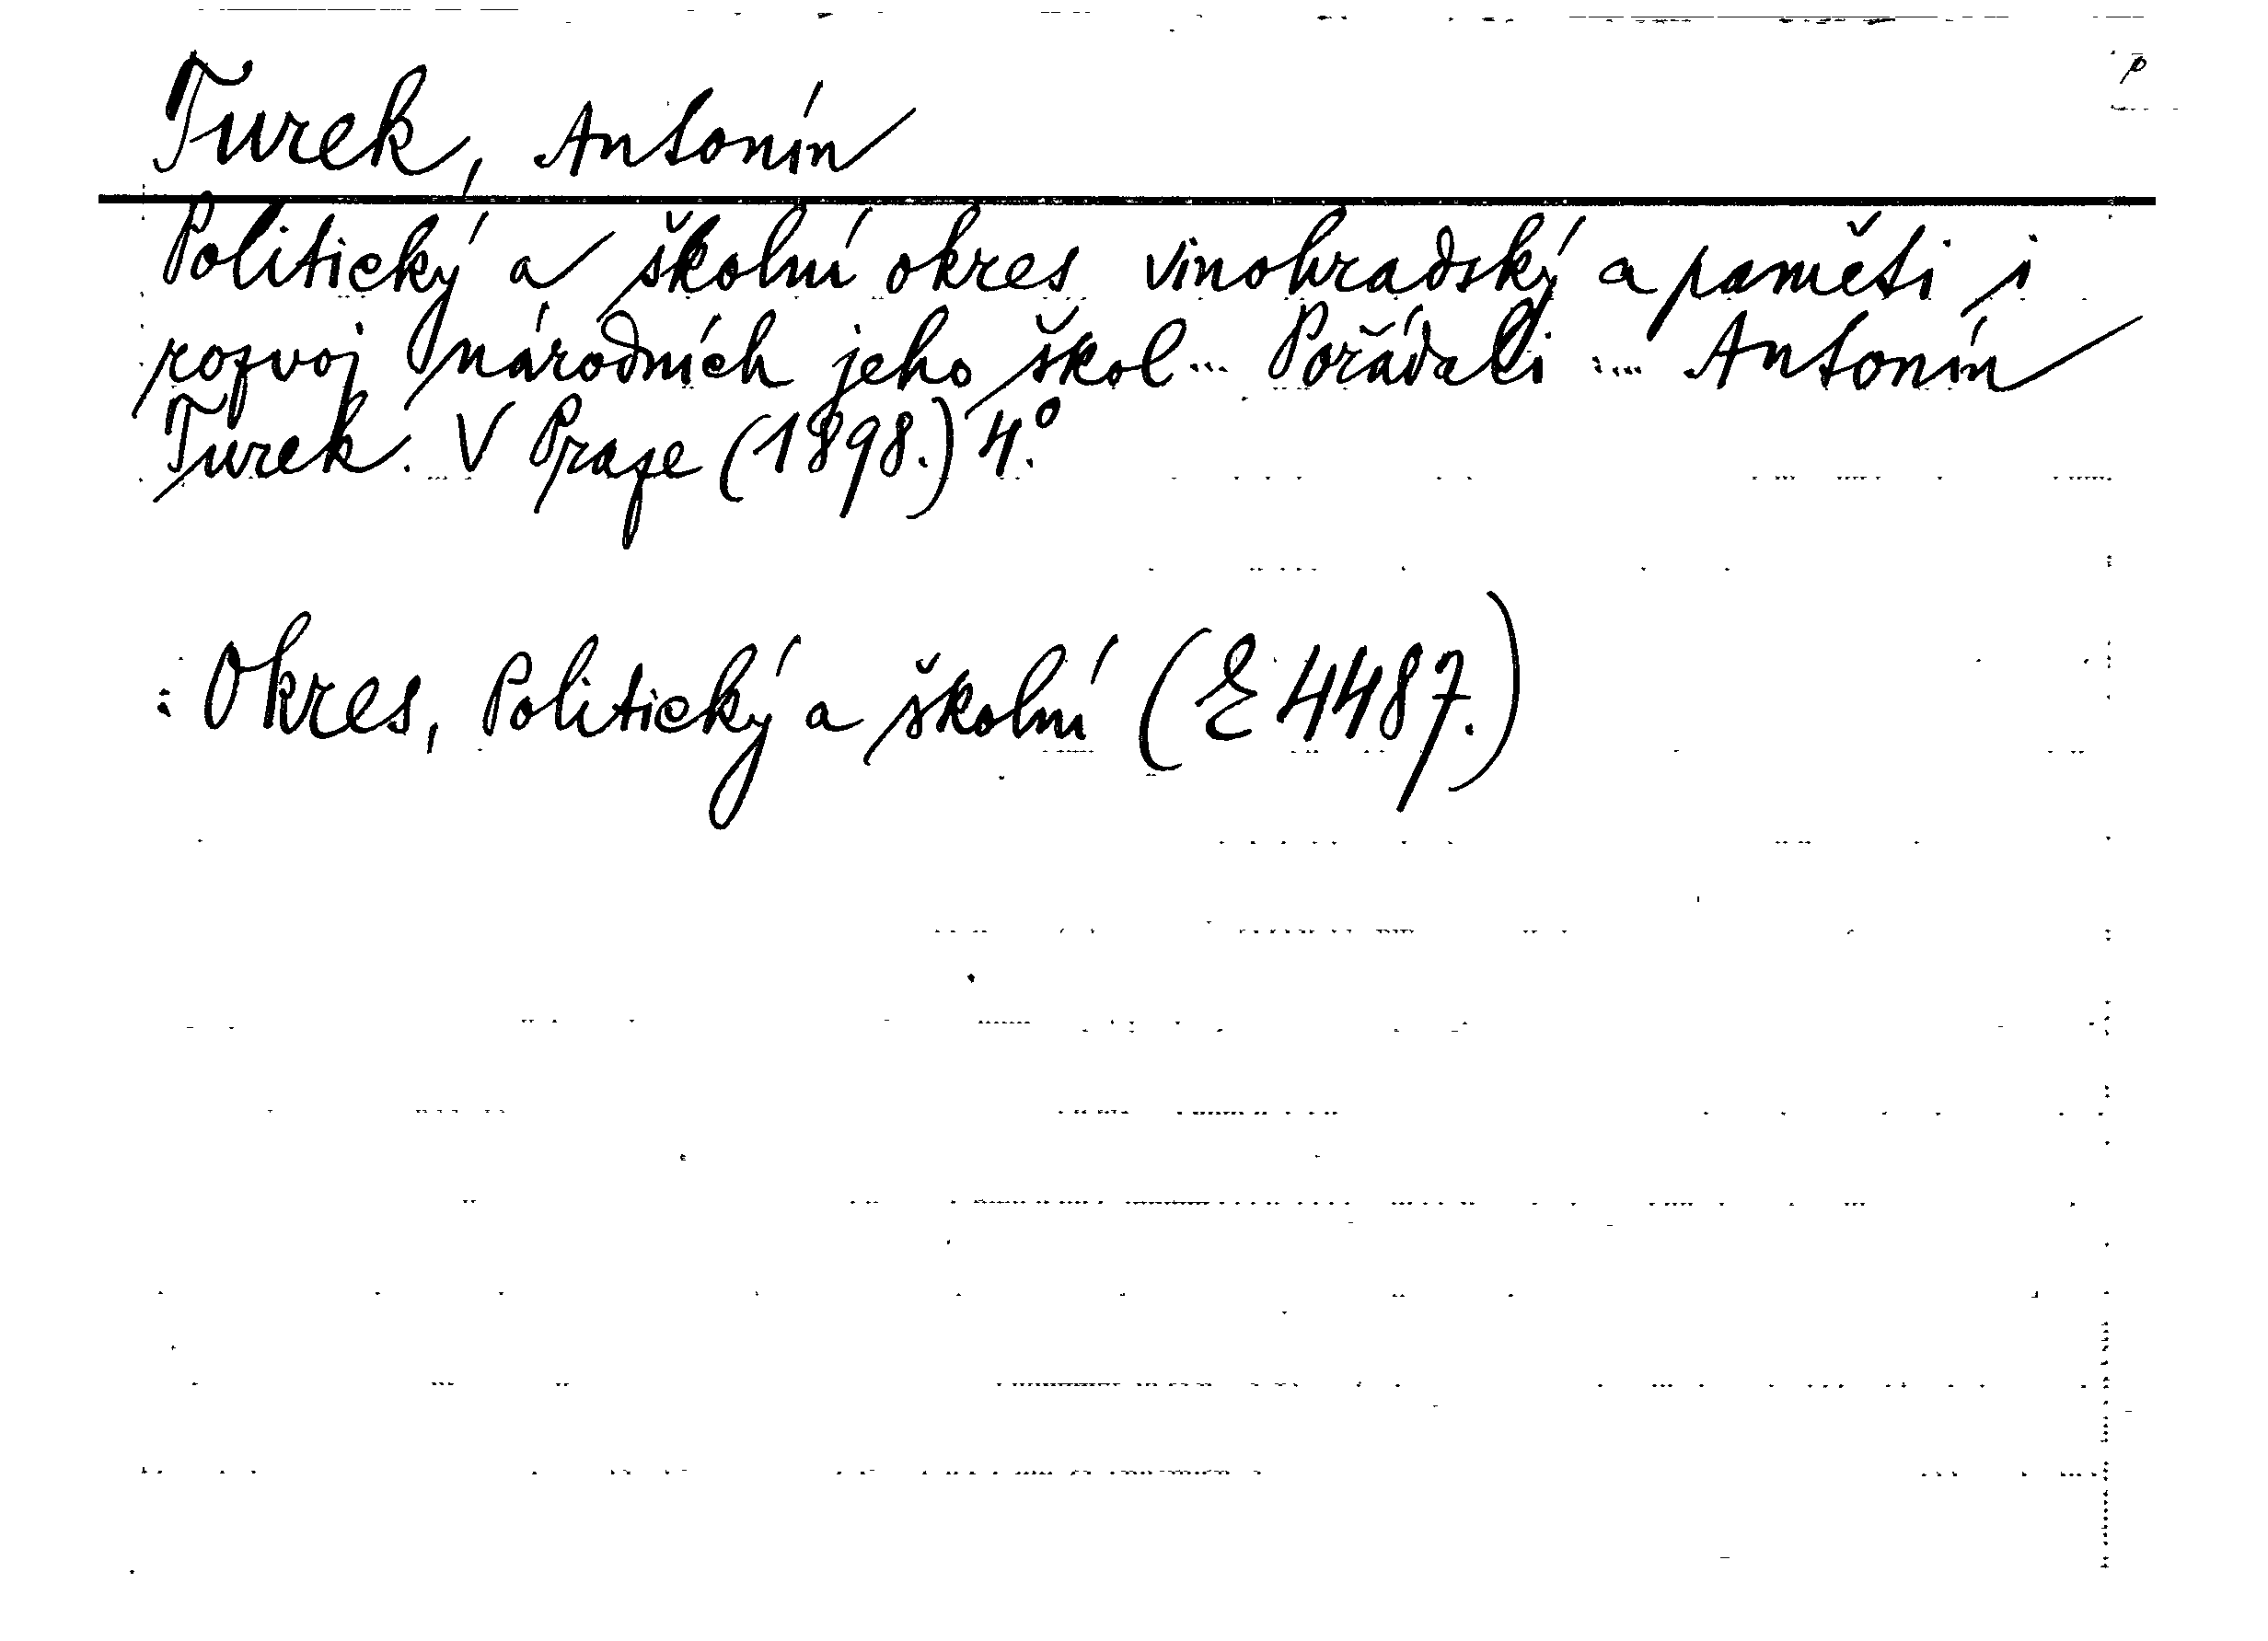 p
Turek, Antonín
Politický a školní okres vinohradský a paměti i
rozvoj národních jeho škol... Pořádali .... Antonín
Turek. V Praze (1898.) 4.°
: Okres, Politický a školní (E 4487.)